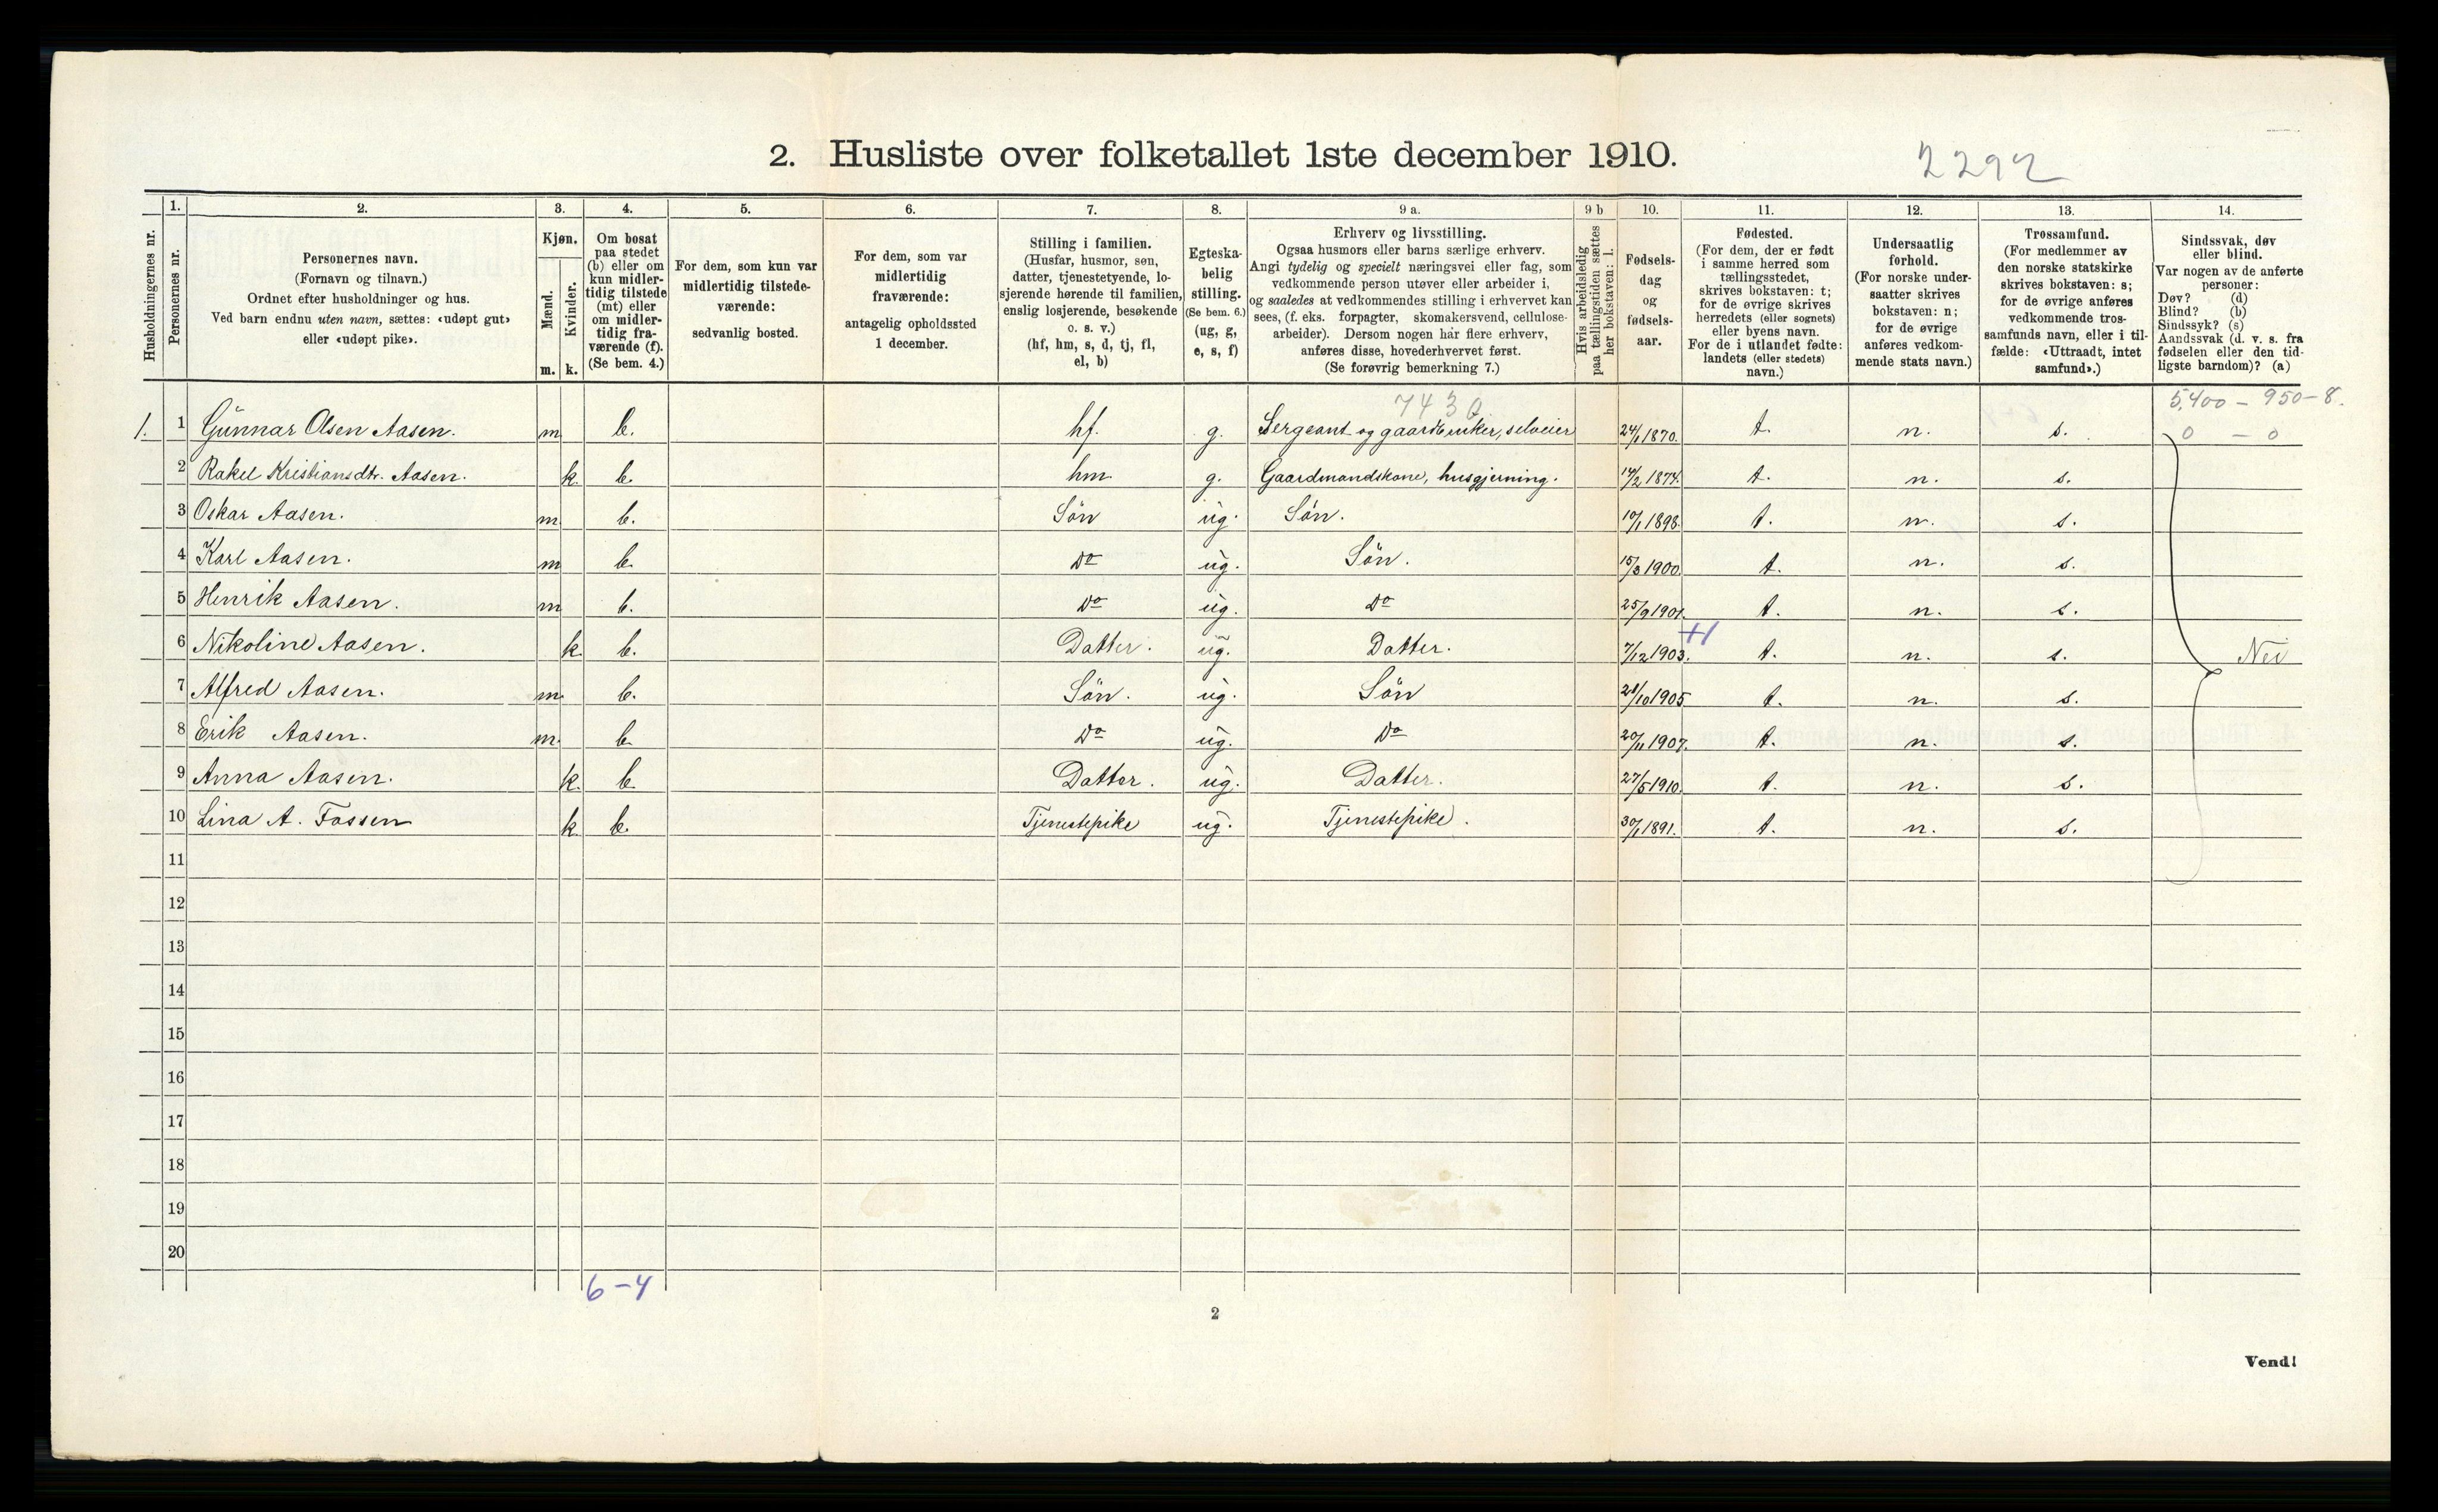 2. Husliste over folketallet 1ste december 1910.
2292
1. 2. 3. 4. 5. 6. 7. 8. 9 a. 9 b 10. 11. 12. 13. 14.
Husholdningernes nr.
Personernes nr.
Personernes navn.
(Fornavn og tilnavn.)
Ordnet efter husholdninger og hus.
Ved barn endnu uten navn, sættes: «udøpt gut»
eller «udøpt pike».
Kjøn.
Mænd.
Kvinder.
m. k.
Om bosat
paa stedet
(b) eller om
kun midler-
tidig tilstede
(mt) eller
om midler-
tidig fra-
værende (f).
(Se bem. 4.)
For dem, som kun var
midlertidig tilstede-
værende:
sedvanlig bosted.
For dem, som var
midlertidig
fraværende:
antagelig opholdssted
1 december.
Stilling i familien.
(Husfar, husmor, søn,
datter, tjenestetyende, lo-
sjerende hørende til familien,
enslig losjerende, besøkende
o. s. v.)
(hf, hm, s, d, tj, fl,
el, b)
Egteska-
belig
stilling.
(Se bem. 6.)
(ug, g,
e, s, f)
Erhverv og livsstilling.
Ogsaa husmors eller barns særlige erhverv.
Angi tydelig og specielt næringsvei eller fag, som
vedkommende person utøver eller arbeider i,
og saaledes at vedkommendes stilling i erhvervet kan
sees, (f. eks. forpagter, skomakersvend, cellulose-
arbeider). Dersom nogen har flere erhverv,
anføres disse, hovederhvervet først.
(Se forøvrig bemerkning 7.)
Hvis arbeidsledig
paa tællingstiden sættes
her bokstaven: l.
Fødsels-
dag
og
fødsels-
aar.
Fødested.
(For dem, der er født
i samme herred som
tællingsstedet,
skrives bokstaven: t;
for de øvrige skrives
herredets (eller sognets)
eller byens navn.
For de i utlandet fødte:
landets (eller stedets)
navn.)
Undersaatlig
forhold.
(For norske under-
saatter skrives
bokstaven: n;
for de øvrige
anføres vedkom-
mende stats navn.)
Trossamfund.
(For medlemmer av
den norske statskirke
skrives bokstaven: s;
for de øvrige anføres
vedkommende tros-
samfunds navn, eller i til-
fælde: «Uttraadt, intet
samfund».)
Sindssvak, døv
eller blind.
Var nogen av de anførte
personer:
Døv? (d)
Blind? (b)
Sindssyk? (s)
Aandssvak (d. v. s. fra
fødselen eller den tid-
ligste barndom)? (a)
7430 5,400 – 950 – 8.
1. 1 Gunnar Olsen Aasen. m b. hf. g. Sergeant og gaardbruker, selveier 24/1 1870. t. n. s. 0 – 0
2 Rakel Kristiansdtr. Aasen. k. b. hm g. Gaardmandskone, husgjerning. 14/2 1874. t. n. s.
3 Oskar Aasen. m b. Sön ug. Sön. 10/1 1898. t. n. s.
4 Karl Aasen. m b. Do ug. Sön. 15/3 1900. t. n. s.
5 Henrik Aasen. m b. Do ug. Do 25/9 1901. t. n. s.
6 Nikoline Aasen. k. b. Datter. ug. Datter. 7/12 1903. t. n. s. Nei
7 Alfred Aasen. m. b. Sön. ug. Sön 21/10 1905 t. n. s.
8 Erik Aasen. m. b Do ug. Do 20/11 1907. t. n. s.
9 Anna Aasen. k. b Datter. ug. Datter. 27/5 1910. t. n. s.
10 Lina A. Fossen k. b. Tjenestepike ug. Tjenestepike. 30/1 1891. t. n. s.
11
12
13
14
15
16
17
18
19
20
6 – 4
2
Vend!